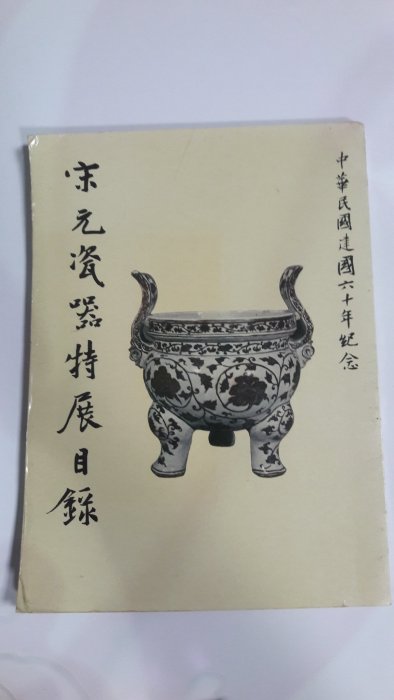 中華民國建國六十年紀念
宋元瓷器特展目錄